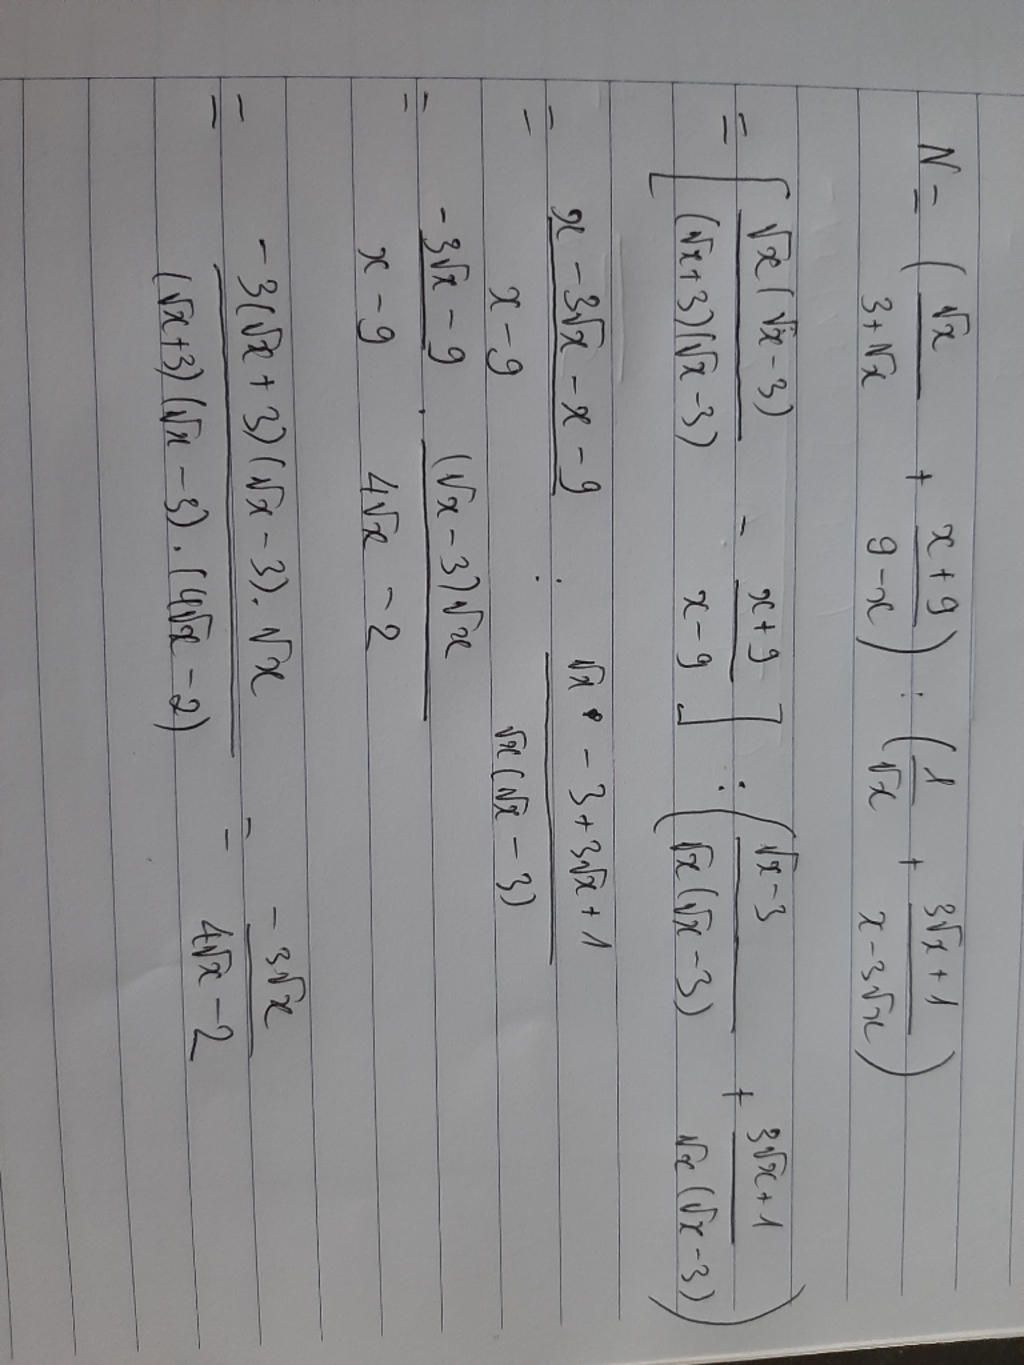 N = (√x / 3+√x + x+9 / 9-x) : (1 / √x + 3√x+1 / x-3√x)
= [√x(√x-3) / (√x+3)(√x-3) - x+9 / x-9] : (√x-3 / √x(√x-3) + 3√x+1 / √x(√x-3))
= x-3√x-x-9 / x-9 : √x-3+3√x+1 / √x(√x-3)
= -3√x-9 / x-9 . (√x-3)√x / 4√x-2
= -3(√x+3)(√x-3).√x / (√x+3)(√x-3).(4√x-2) = -3√x / 4√x-2